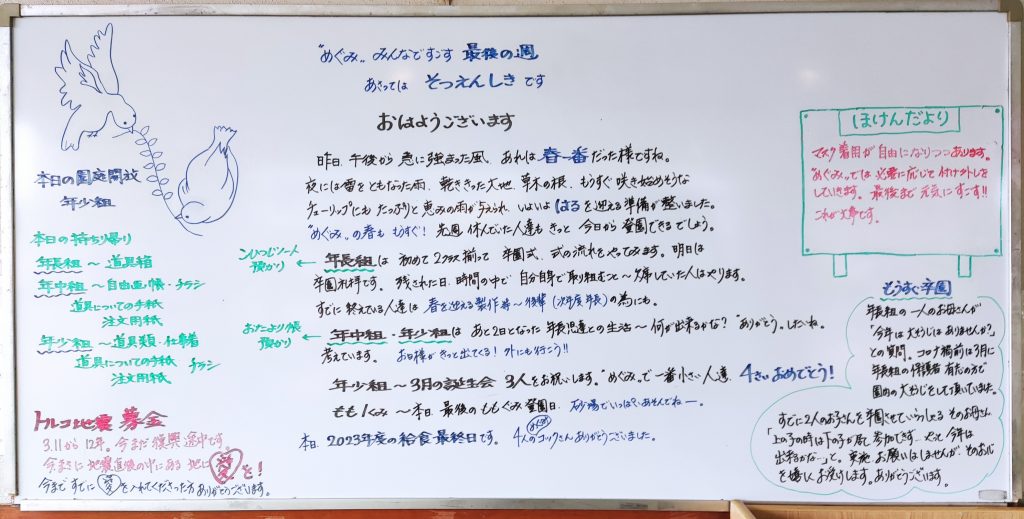 "めぐみ" みんなですごす 最後の週
あさっては そつえんしき です
おはようございます
昨日、午後から 急に強まった風、あれは 春一番 だった様ですね。
夜には雷をともなった雨、乾ききった大地、草木の根、もうすぐ 咲き始めそうな
チューリップにも たっぷりと 恵みの雨が与えられ、いよいよ はる を迎える準備が整いました。
"めぐみ"の春も もうすぐ! 先週 休んでいた人達も きっと 今日から 登園できるでしょう。
ひつじノート
預かり
年長組は 初めて 2クラス揃って 卒園式、式の流れをやってみます。明日は
卒園礼拝です。 残された日、時間の中で 自分自身で取り組むこと〜 していた人はやります。
すでに 終えている人達は 春を迎える製作等〜後輩(次年度 年長)の為にも。
おたより帳
預かり
年中組・年少組は あと2日となった 年長児達との生活〜何が出来るかな? "ありがとう"したいね。
考えています。 お日様が きっと出てくる! 外にも行こう!!
年少組〜3月の誕生会 3人をお祝いします。"めぐみ"で一番小さい人達、4さい おめでとう!
もも1くみ 〜 本日、最後のももぐみ 登園日。 砂場でいっぱいあそんでねー。
本日、2023年度の給食最終日です。 4人のコックさん ありがとうございました。
本日の園庭開放
年少組
本日の持ち帰り
年長組 〜 道具箱
年中組 〜 自由画帳・チラシ
道具についての手紙
注文用紙
年少組 〜 道具類・仕事着
道具についての手紙 チラシ
注文用紙
トルコ地震 募金
3.11から 12年。今まだ 復興 途中です。
今まさに 地震直後の中にある 地に 愛 を!
今まで すでに 愛 を入れてくださった方 ありがとうございます。
ほけんだより
マスク着用が自由になりつつあります。
"めぐみ"では 必要に応じて 付け外しを
していきます。最後まで 元気にすごす!!
これが大事です。
もうすぐ卒園
年長組の 一人のお母さんが
「今年は 大そうじは ありませんか?」
との質問。コロナ禍前は3月に
年長組の保護者 有志の方で
園の 大そうじをして頂いていました。
すでに 2人のお子さんを 卒園させていらっしゃる そのお母さん
「上の子の時は下の子が居て 参加できず…やっと 今年は
出来るかなー」と。実施、お願いはしませんが、そのお心
を 嬉しく お受けします。ありがとうございます。